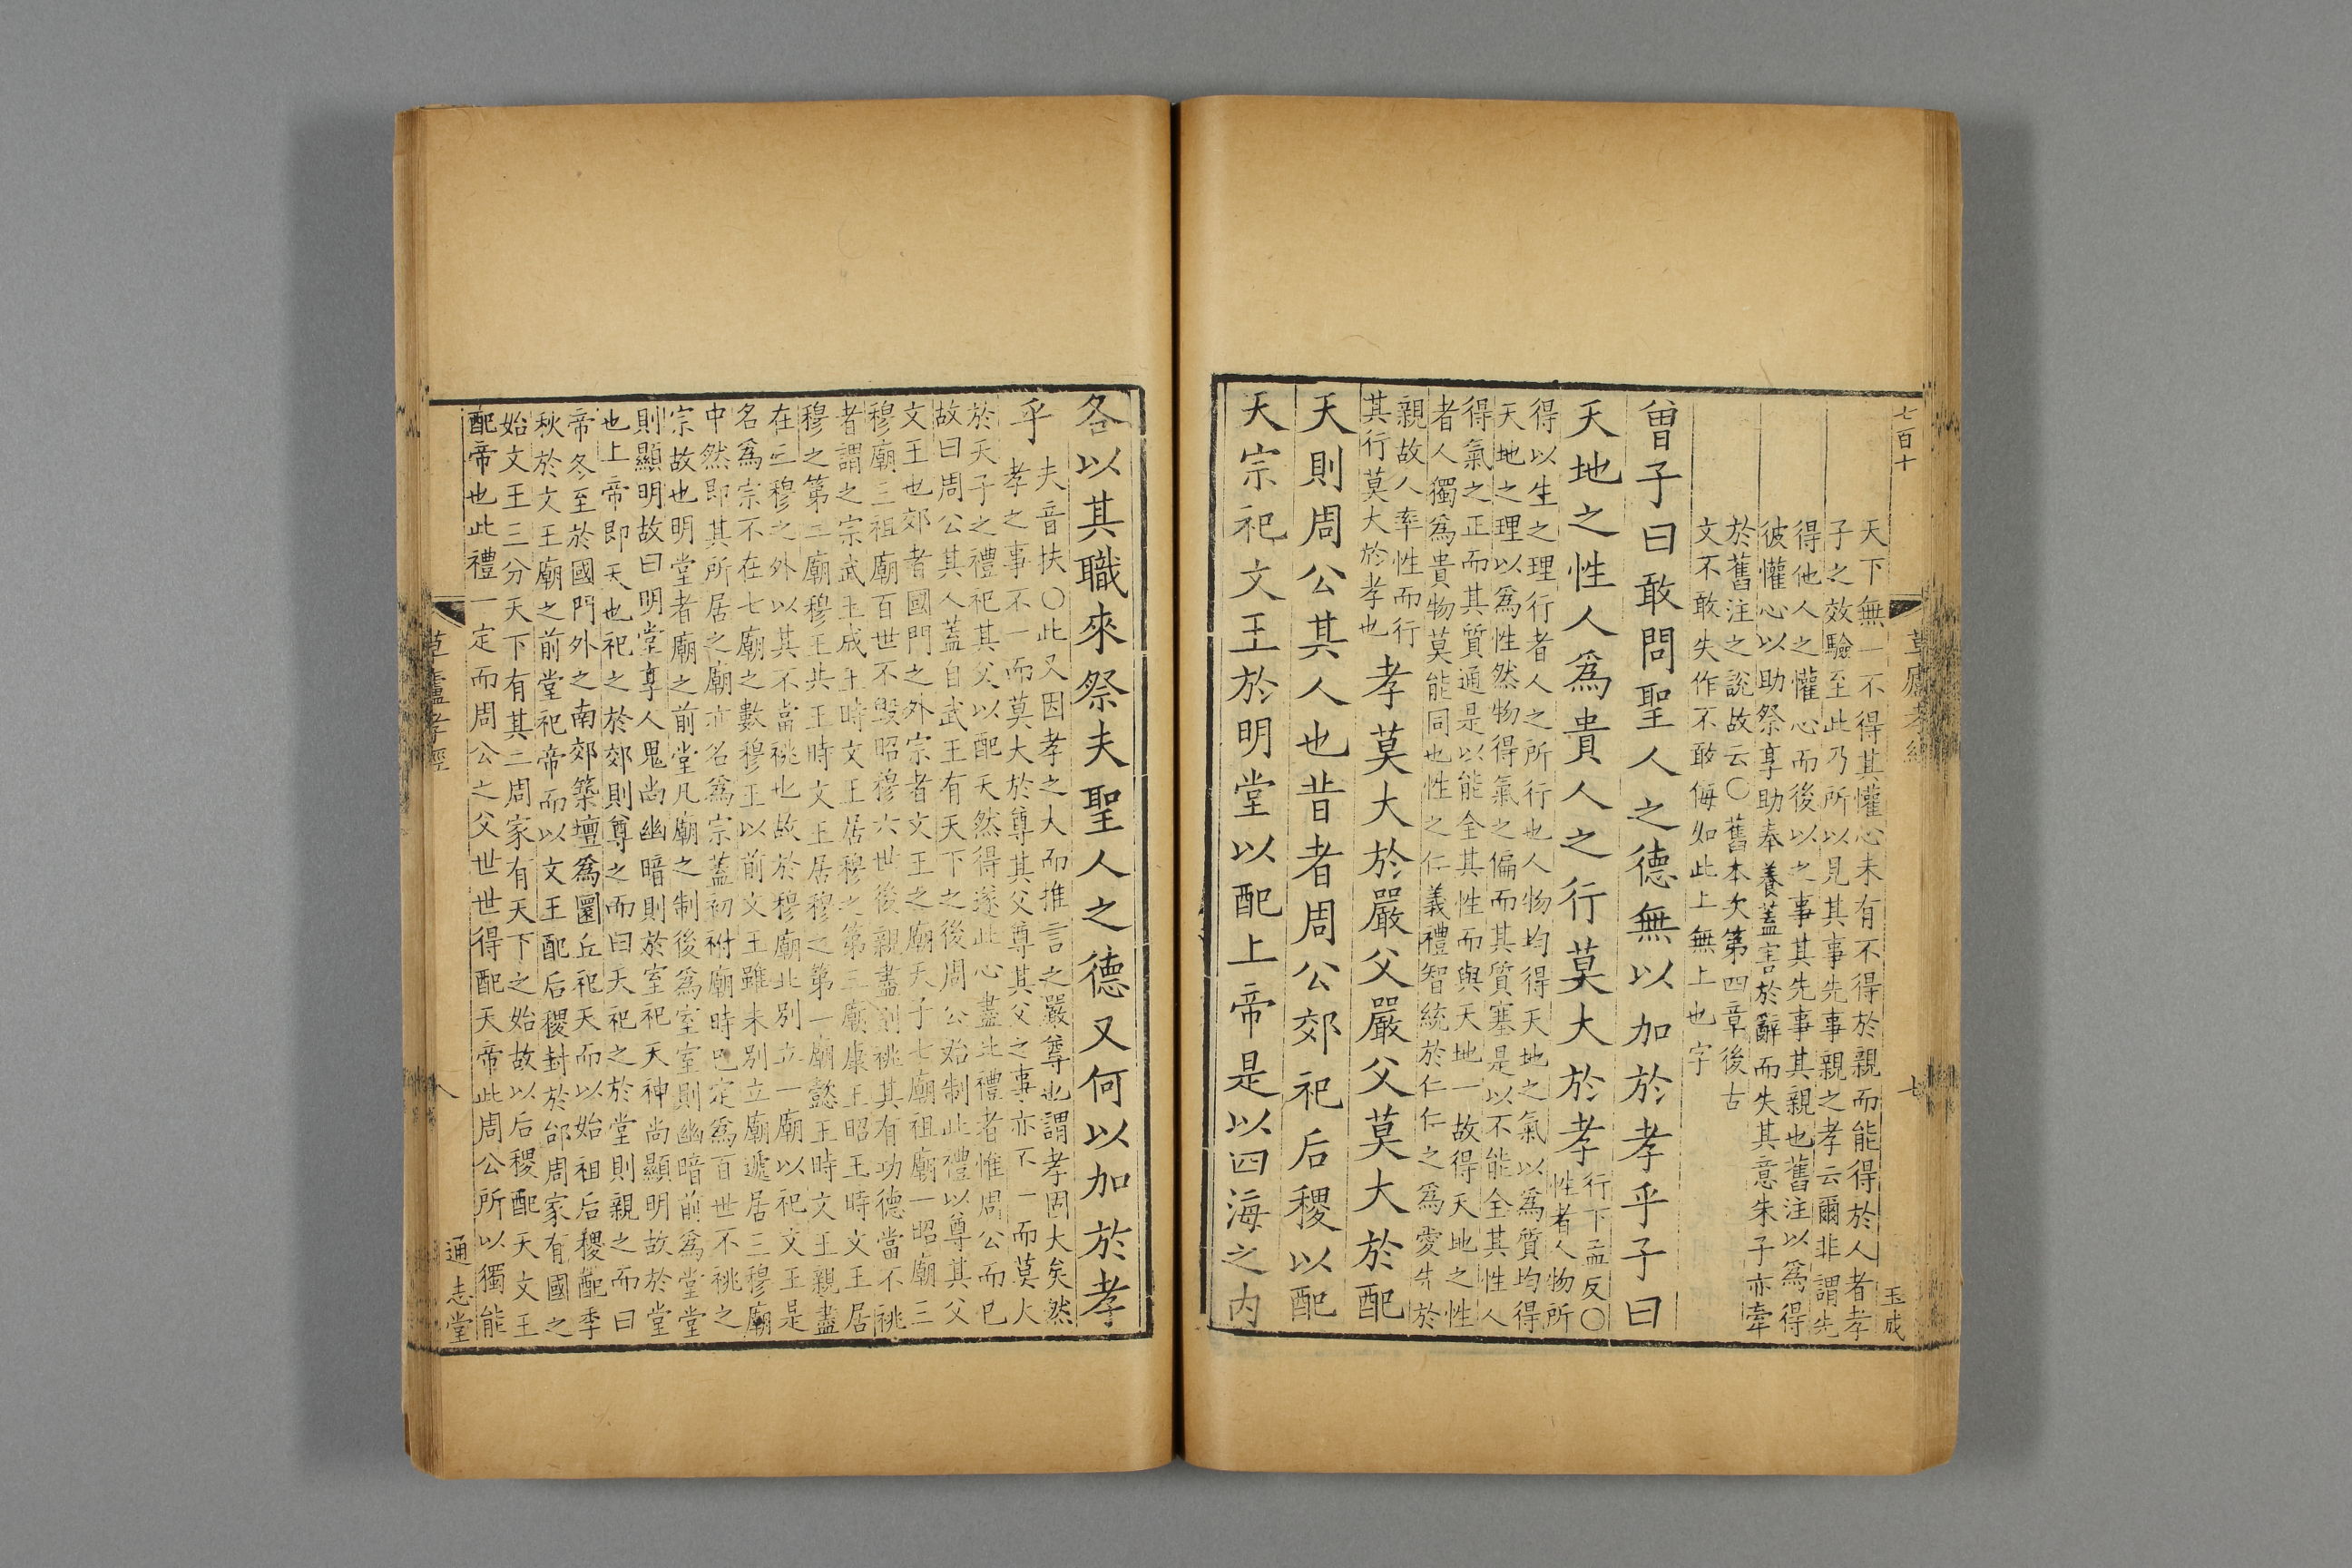 七百十
草廬孝經
七
玉成
天下無一不得其懽心未有不得於親而能得於人者孝
子之效驗至此乃所以見其事先事親之孝云爾非謂先
得他人之懽心而後以之事其先事其親也舊注以為得
彼懽心以助祭享助奉養蓋害於辭而失其意朱子亦牽
於舊注之說故云○舊本次第四章後古
文不敢失作不敢侮如此上無上也字
曾子曰敢問聖人之德無以加於孝乎子曰
天地之性人爲貴人之行莫大於孝行下孟反○
性者人物所
得以生之理行者人之所行也人物均得天地之氣以爲質均得
天地之理以爲性然物得氣之偏而其質塞是以不能全其性人
得氣之正而其質通是以能全其性而與天地一故得天地之性
者人獨爲貴物莫能同也性之仁義禮智統於仁仁之爲愛先於
親故人率性而行
其行莫大於孝也
孝莫大於嚴父嚴父莫大於配
天則周公其人也昔者周公郊祀后稷以配
天宗祀文王於明堂以配上帝是以四海之内
各以其職來祭夫聖人之德又何以加於孝
乎夫音扶○此又因孝之大而推言之嚴尊也謂孝固大矣然
孝之事不一而莫大於尊其父尊其父之事亦不一而莫大
於天子之禮祀其父以配天然得遂此心盡此禮者惟周公而已
故曰周公其人蓋自武王有天下之後周公始制此禮以尊其父
文王也郊者國門之外宗者文王之廟天子七廟祖廟一昭廟三
穆廟三祖廟百世不毀昭穆六世後親盡則祧其有功德當不祧
者謂之宗武王成王時文王居穆之第三廟康王昭王時文王居
穆之第二廟穆王共王時文王居穆之第一廟懿王時文王親盡
在三穆之外以其不當祧也故於穆廟北別立一廟以祀文王是
名爲宗不在七廟之數穆王以前文王雖未別立廟遞居三穆廟
中然即其所居之廟亦名爲宗蓋初祔廟時已定爲百世不祧之
宗故也明堂者廟之前堂凡廟之制後爲室室則幽暗前爲堂堂
則顯明故曰明堂享人鬼尚幽暗則於室祀天神尚顯明故於堂
也上帝即天也祀之於郊則尊之而曰天祀之於堂則親之而曰
帝冬至於國門外之南郊築壇爲圜丘祀天而以始祖后稷配季
秋於文王廟之前堂祀帝而以文王配后稷封於邰周家有國之
始文王三分天下有其二周家有天下之始故以后稷配天文王
配帝也此禮一定而周公之父世世得配天帝此周公所以獨能
草廬孝經
八
通志堂